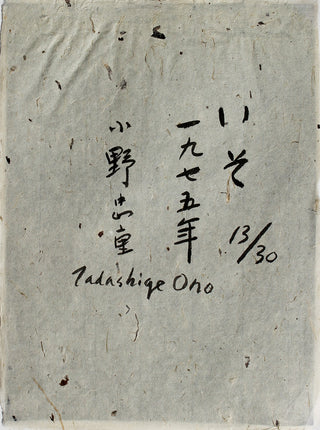 いそ
一九七五年
小野忠重
13/30
Tadashige Ono